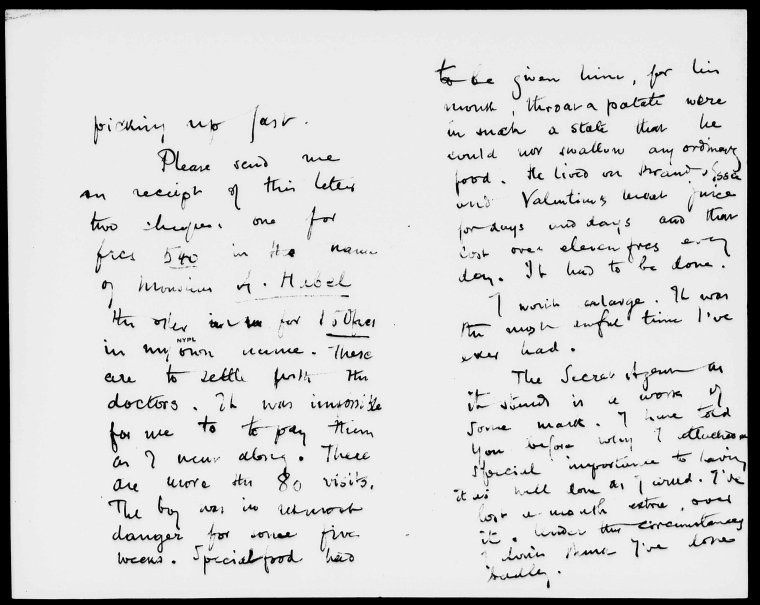 picking up fast.
Please send me
on receipt of this letter
two cheques. one for
frcs 540 in the name
of Monsieur A. Hebel
the other for 150 frcs
in my own name. These
NYPL
are to settle with the
doctors. It was impossible
for me to to pay them
as I went along. There
are more than 80 visits.
The boy was in utmost
danger for some five
weeks. Special food had
to be given him, for his
mouth, throat & palate were
in such a state that he
could not swallow any ordinary
food. He lived on Brand's Essce
and Valentine's meat juice
for days and days and that
cost over eleven frcs every
day. It had to be done.
I won't enlarge. It was
the most awful time I've
ever had.
The Secret Agent as
it stands is a work of
some mark. I have told
you before why I attached a
special importance to having
it as well done as I could. I've
lost a month extra, over
it. Under the circumstances
I don't think I've done
badly.